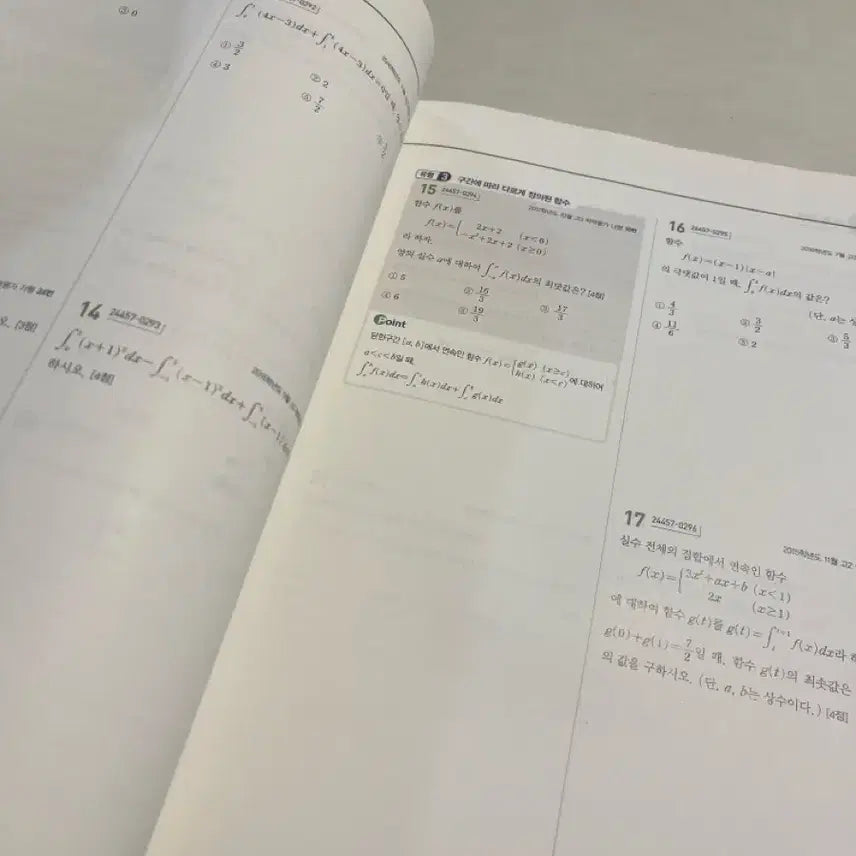 ③ 0
∫ (4x-3)dx+∫ (4x-3)dx=
① 3/2
② 2
④ 3
⑤ 7/2
14 24457-0293
∫ (x+1)²dx-∫ (x-1)²dx+∫ (x-1)
하시오. [4점]
오. [3점]
유형 3 구간에 따라 다르게 정의된 함수
15 24457-0294
함수 f(x)를
f(x)={ 2x+2 (x<0)
-x²+2x+2 (x≥0)
라 하자.
양의 실수 a에 대하여 ∫ f(x)dx의 최댓값은? [4점]
① 5
② 16/3
③ 17/3
④ 6
⑤ 19/3
Point
닫힌구간 [a, b]에서 연속인 함수 f(x)={ g(x) (x≥c)
h(x) (x<c) 에 대하여
a<c<b일 때,
∫ f(x)dx=∫ h(x)dx+∫ g(x)dx
16 24457-0295
함수
f(x)=(x-1)|x-a|
의 극댓값이 1일 때, ∫ f(x)dx의 값은?
(단, a는
① 4/3
② 3/2
③ 5/3
④ 11/6
⑤ 2
17 24457-0296
실수 전체의 집합에서 연속인 함수
f(x)={ 3x²+ax+b (x<1)
2x (x≥1)
에 대하여 함수 g(t)를 g(t)=∫ₜᵗ⁺¹ f(x)dx라 하
g(0)+g(1)=7/2일 때, 함수 g(t)의 최솟값은
의 값을 구하시오. (단, a, b는 상수이다.) [4점]